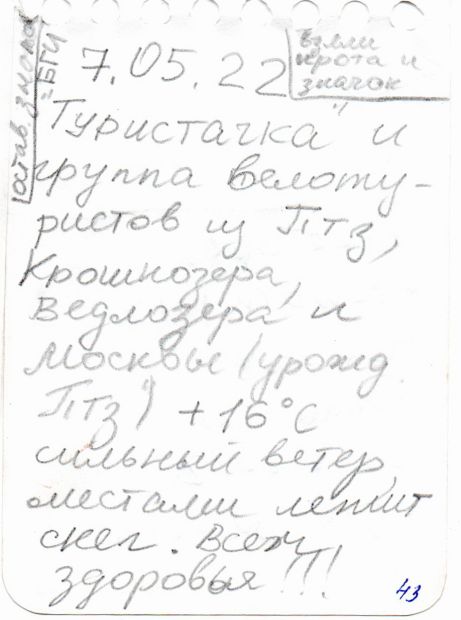 7.05.22
взяли
крота и
значок
остав знак
=БГИ
Туристачка" и
группа велоту-
ристов из ПТЗ,
Крошнозера,
Ведлозера и
Москвы (урожд.
ПТЗ") +16°С
сильный ветер,
местами лежит
снег. Всем
здоровья!!!
43